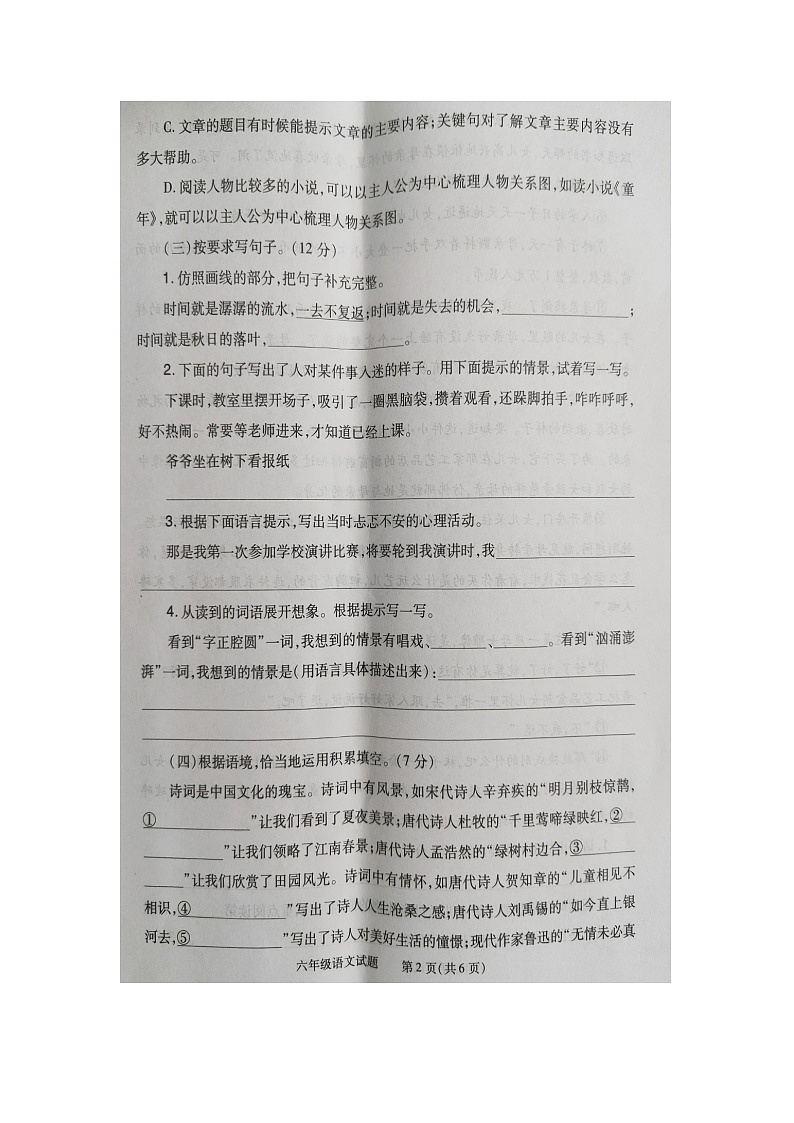 C.文章的题目有时候能提示文章的主要内容;关键句对了解文章主要内容没有
多大帮助。
D.阅读人物比较多的小说,可以以主人公为中心梳理人物关系图,如读小说《童
年》,就可以以主人公为中心梳理人物关系图。
(三)按要求写句子。(12分)
1.仿照画线的部分,把句子补充完整。
时间就是潺潺的流水,一去不复返;时间就是失去的机会,____________;
时间就是秋日的落叶,____________。
2.下面的句子写出了人对某件事入迷的样子。用下面提示的情景,试着写一写。
下课时,教室里摆开场子,吸引了一圈黑脑袋,攒着观看,还跺脚拍手,咋咋呼呼,
好不热闹。常要等老师进来,才知道已经上课。
爷爷坐在树下看报纸
3.根据下面语言提示,写出当时忐忑不安的心理活动。
那是我第一次参加学校演讲比赛,将要轮到我演讲时,我____________
4.从读到的词语展开想象。根据提示写一写。
看到“字正腔圆”一词,我想到的情景有唱戏、______、______。看到“汹涌澎
湃”一词,我想到的情景是(用语言具体描述出来):____________
(四)根据语境,恰当地运用积累填空。(7分)
诗词是中国文化的瑰宝。诗词中有风景,如宋代诗人辛弃疾的“明月别枝惊鹊,
①____________”让我们看到了夏夜美景;唐代诗人杜牧的“千里莺啼绿映红,②__
________”让我们领略了江南春景;唐代诗人孟浩然的“绿树村边合,③______
____”让我们欣赏了田园风光。诗词中有情怀,如唐代诗人贺知章的“儿童相见不
相识,④____________”写出了诗人人生沧桑之感;唐代诗人刘禹锡的“如今直上银
河去,⑤____________”写出了诗人对美好生活的憧憬;现代作家鲁迅的“无情未必真
六年级语文试题 第2页(共6页)